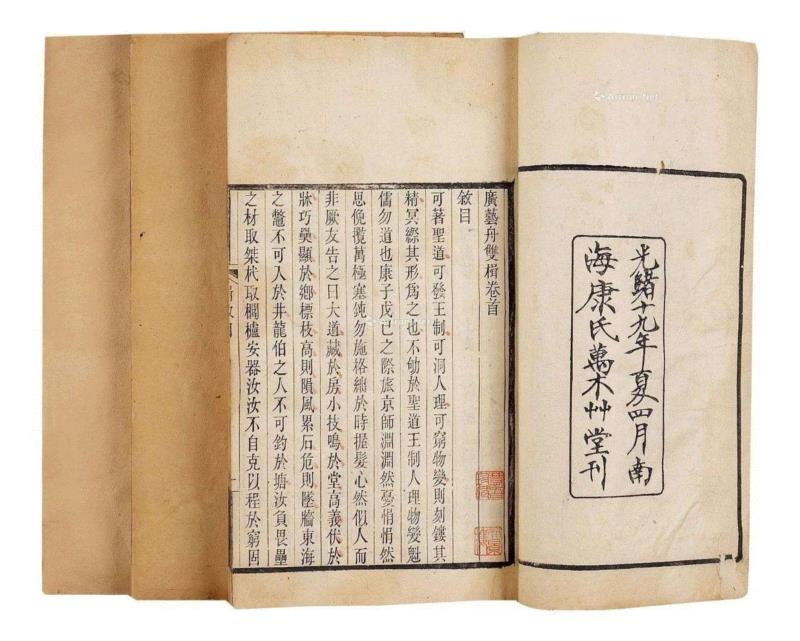 光緒十九年夏四月南
海康氏萬木艸堂刊
廣藝舟雙楫卷首
敘目
可著聖道可發王制可洞人理可窮物變則刻鏤其
精冥縩其形爲之也不劬於聖道王制人理物變魁
儒勿道也康子戊己之際旅京師淵淵然憂悁悁然
思俛攬萬極塞鈍勿施格絀於時握髮心然似人而
非厥友告之曰大道藏於房小技鳴於堂高義伏於
牀巧奰顯於鄉標枝高則隕風累石危則墜牆東海
之鼈不可入於井龍伯之人不可釣於塘汝負畏壘
之材取桀杙取櫚櫨安器汝汝不自克以程於窮固
Artron.Net